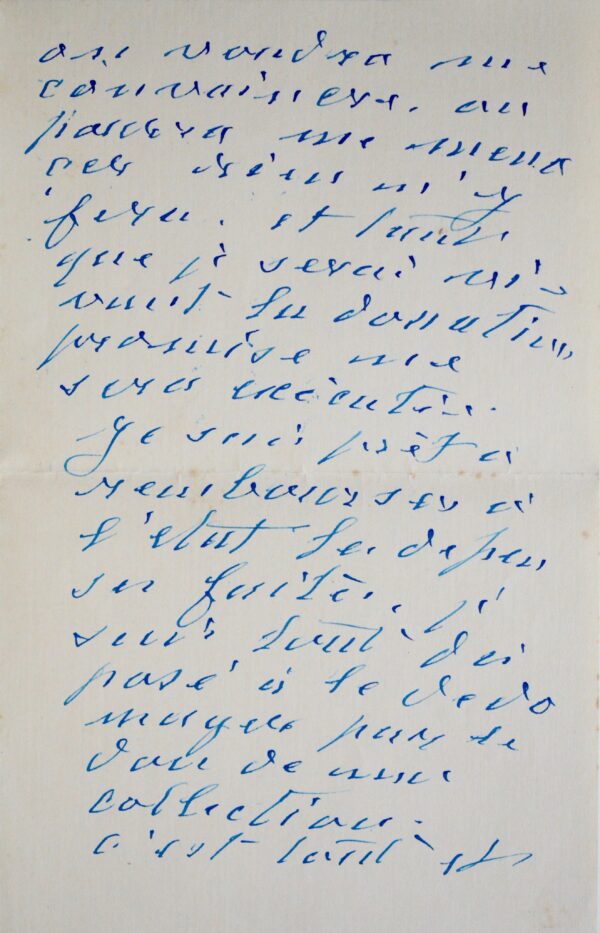 on voudra me
convaincre. on
pourra me mena
cer rien n'y
fera. et tant
que je serai vi-
vant la donation
promise ne
sera exécutée.
Je suis prêt a
rembourser à
l'etat les depen
ses faites, je
suis tout dis
posé à le dedo
mager par le
don de ma
collection.
c'est tout et